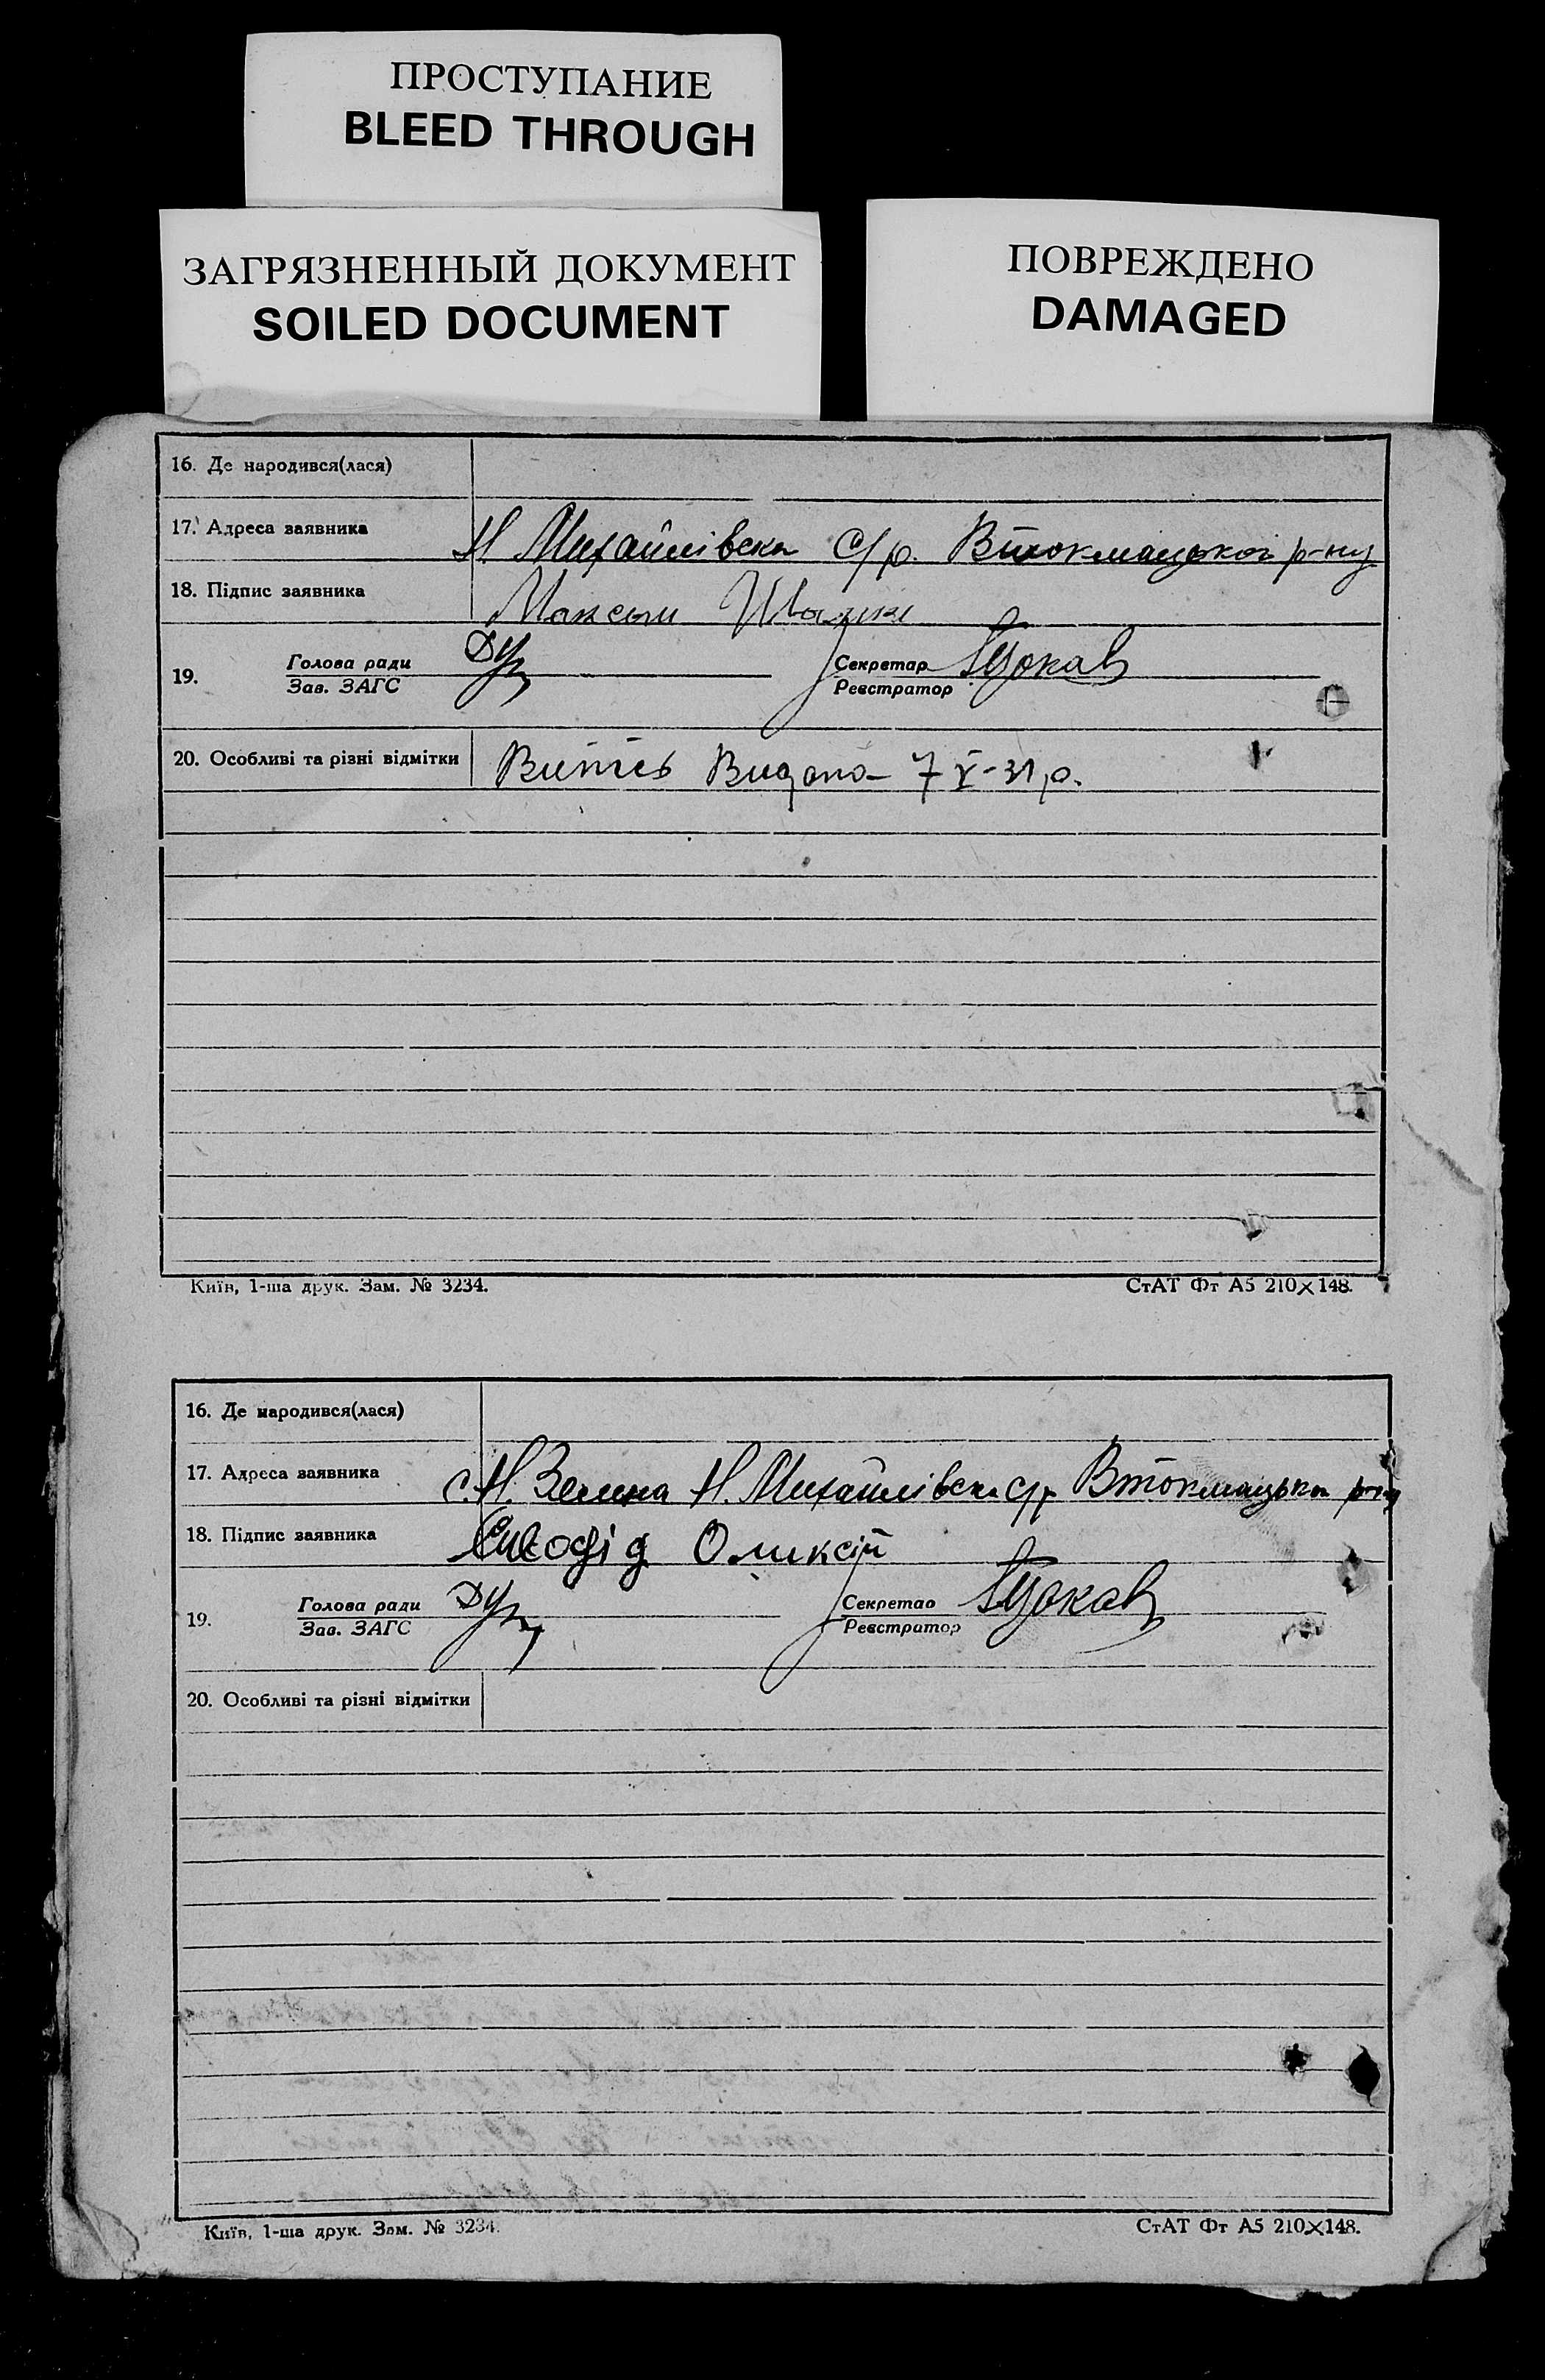 ПРОСТУПАНИЕ
BLEED THROUGH
ЗАГРЯЗНЕННЫЙ ДОКУМЕНТ
SOILED DOCUMENT
ПОВРЕЖДЕНО
DAMAGED
16. Де народився(лася)
17. Адреса заявника Н Михайлівска С/р. Втокмацької р-ну
18. Підпис заявника Максым
19. Голова ради Секретар
Зав. ЗАГС Реєстратор
20. Особливі та різні відмітки Витяг Видано 7 V-31 р.
Київ, 1-ша друк. Зам. № 3234. СтАТ Фт А5 210×148.
16. Де народився(лася)
17. Адреса заявника с. Н. Зелена Н. Михайлівска с/р Втокмацька р-ну
18. Підпис заявника Оликсій
19. Голова ради Секретар
Зав. ЗАГС Реєстратор
20. Особливі та різні відмітки
Київ, 1-ша друк. Зам. № 3234. СтАТ Фт А5 210×148.